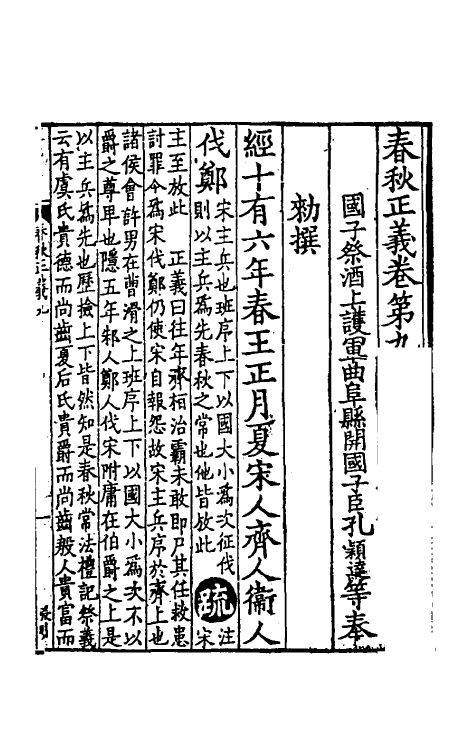 春秋正義卷第九
國子祭酒上護軍曲阜縣開國子臣孔穎達等奉
勑撰
經十有六年春王正月夏宋人齊人衞人
伐鄭
宋主兵也班序上下以國大小爲次征伐
則以主兵爲先春秋之常也他皆放此
疏
注
宋
主至放此　正義曰往年齊桓治霸未敢即尸其任救患
討罪今爲宋伐鄭仍使宋自報怨故宋主兵序於齊上也
諸侯會許男在曹滑之上班序上下以國大小爲次不以
爵之尊卑也隱五年邾人鄭人伐宋附庸在伯爵之上是
以主兵爲先也歷撿上下皆然知是春秋常法禮記祭義
云有虞氏貴德而尚齒夏后氏貴爵而尚齒殷人貴富而
春秋正義九